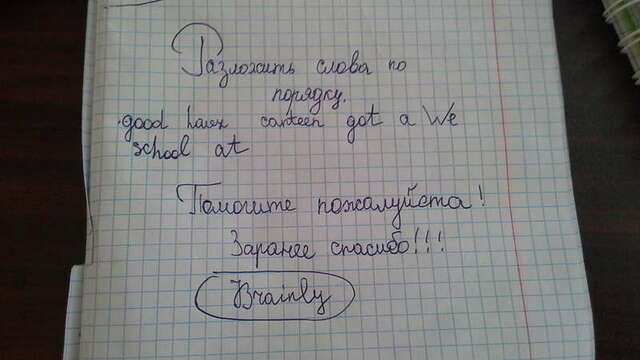 Разложить слова по
порядку.
good have canteen got a We
school at
Помогите пожалуйста!
Заранее спасибо!!!
Brainly